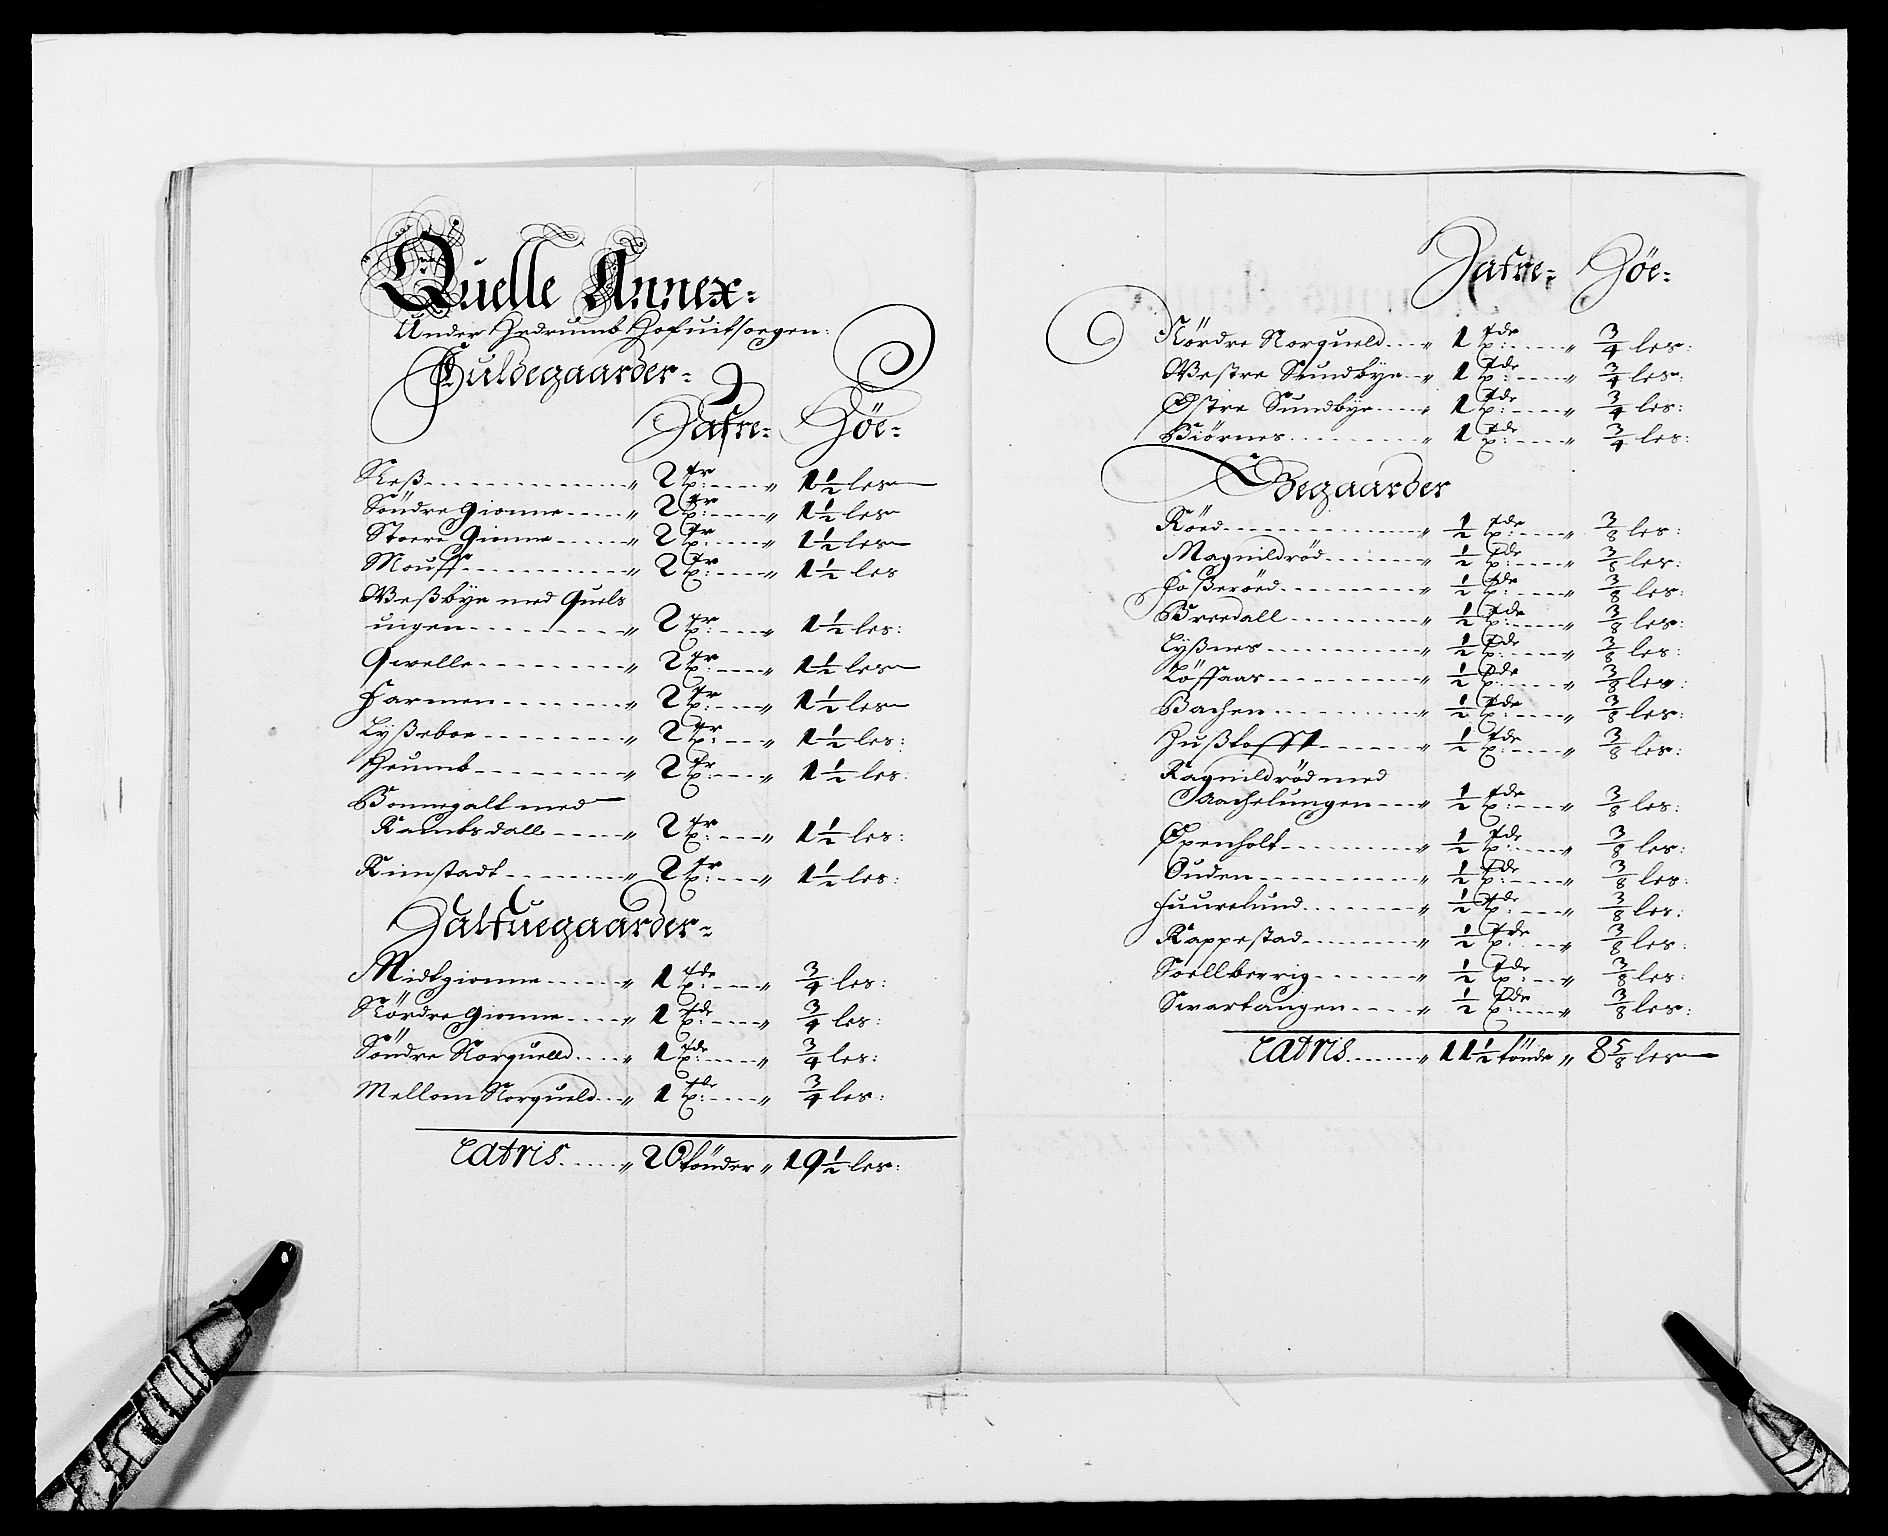 Quelle Annex=
Under Hedrumb Hofuitsoegen:
Fuldegaarder=
Hafre= Höe=
Neß „ 2 tr „ 1½ les
Söndre Gionne „ 2 tr „ 1½ les
Stoere Gionne „ 2 tr „ 1½ les
Mouff „ 2 tr „ 1½ les
Weßbye med Quels
uigen „ 2 tr „ 1½ les:
Qwelle „ 2 tr „ 1½ les
Farmen „ 2 tr „ 1½ les
Lyßeboe „ 2 tr „ 1½ les:
Heumb „ 2 tr „ 1½ les:
Bonnegalt med
Rambsdall „ 2 tr „ 1½ les:
Rimstadt „ 2 tr „ 1½ les:
Halfuegaarder=
Midtgionne „ 1 tde „ ¾ les:
Nördre Gionne „ 1 tde „ ¾ les:
Söndre Norquelld „ 1 tde „ ¾ les:
Mellom Norqueld „ 1 tde „ ¾ les:
Latris „ 26 tönder „ 19½ les:
Hafre= Höe=
Nördre Norqueld „ 1 tde „ ¾ les:
Westre Sundbye „ 1 tde „ ¾ les:
Østre Sundbye „ 1 tde „ ¾ les:
Biörnes „ 1 tde „ ¾ les:
Ødegaarder
Röed „ ½ tde „ ⅜ les:
Magnildröd „ ½ tde „ ⅜ les:
Foßeröed „ ½ tde „ ⅜ les:
Breedall „ ½ tde „ ⅜ les:
Lyßnes „ ½ tde „ ⅜ les:
Löffaas „ ½ tde „ ⅜ les:
Bachen „ ½ tde „ ⅜ les:
Hußtofft „ ½ tde „ ⅜ les:
Ragnildröd med
Aachelungen „ ½ tde „ ⅜ les:
Øxenholt „ ½ tde „ ⅜ les:
Ouden „ ½ tde „ ⅜ les:
Fuurelund „ ½ tde „ ⅜ les:
Rappestad „ ½ tde „ ⅜ les:
Soellberrig „ ½ tde „ ⅜ les:
Swartangen „ ½ tde „ ⅜ les:
Latris „ 11½ tönde „ 8⅝ les